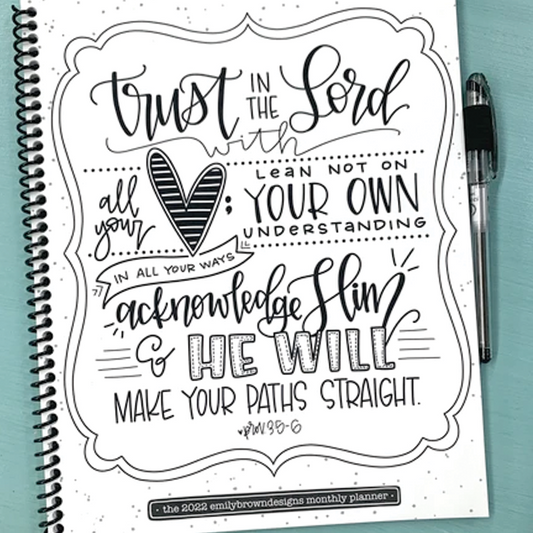 trust IN THE Lord
with
all your ; LEAN NOT ON
YOUR OWN
UNDERSTANDING
IN ALL YOUR WAYS
acknowledge Him
& HE WILL
MAKE YOUR PATHS STRAIGHT.
prov 3:5-6
• the 2022 emilybrowndesigns monthly planner •